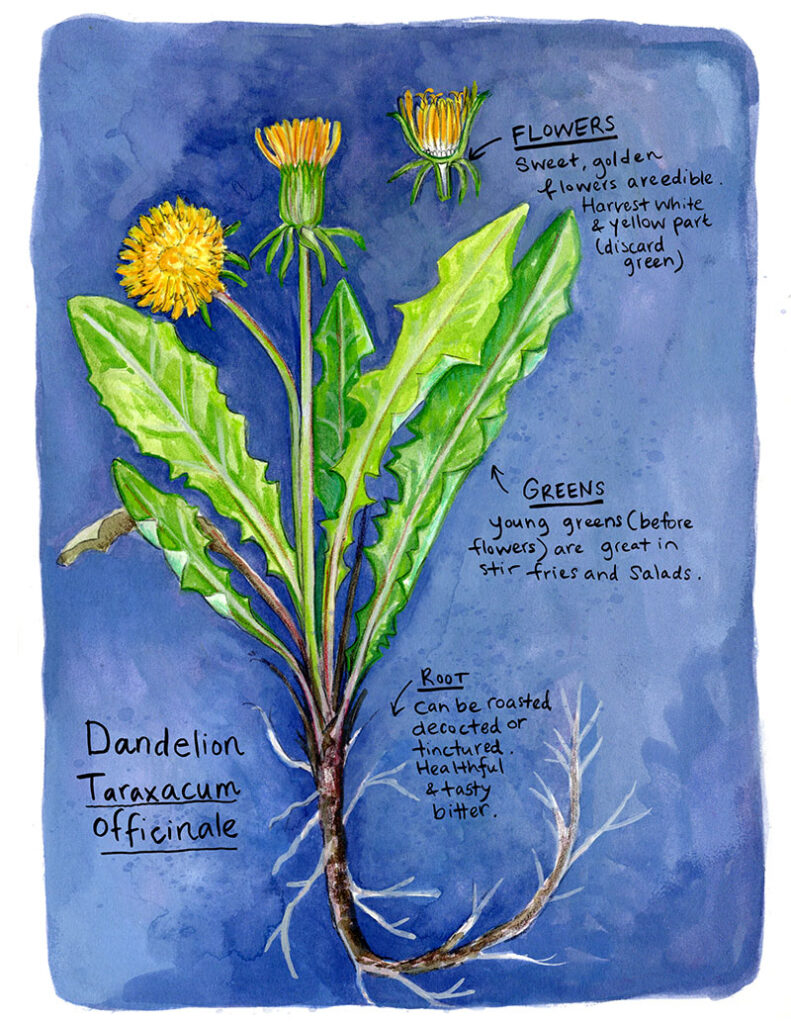 FLOWERS
Sweet, golden
flowers are edible.
Harvest white
& yellow part
(discard
green)
GREENS
young greens (before
flowers) are great in
stir fries and salads.
ROOT
Can be roasted
decocted or
tinctured.
Healthful
& tasty
bitter.
Dandelion
Taraxacum
officinale